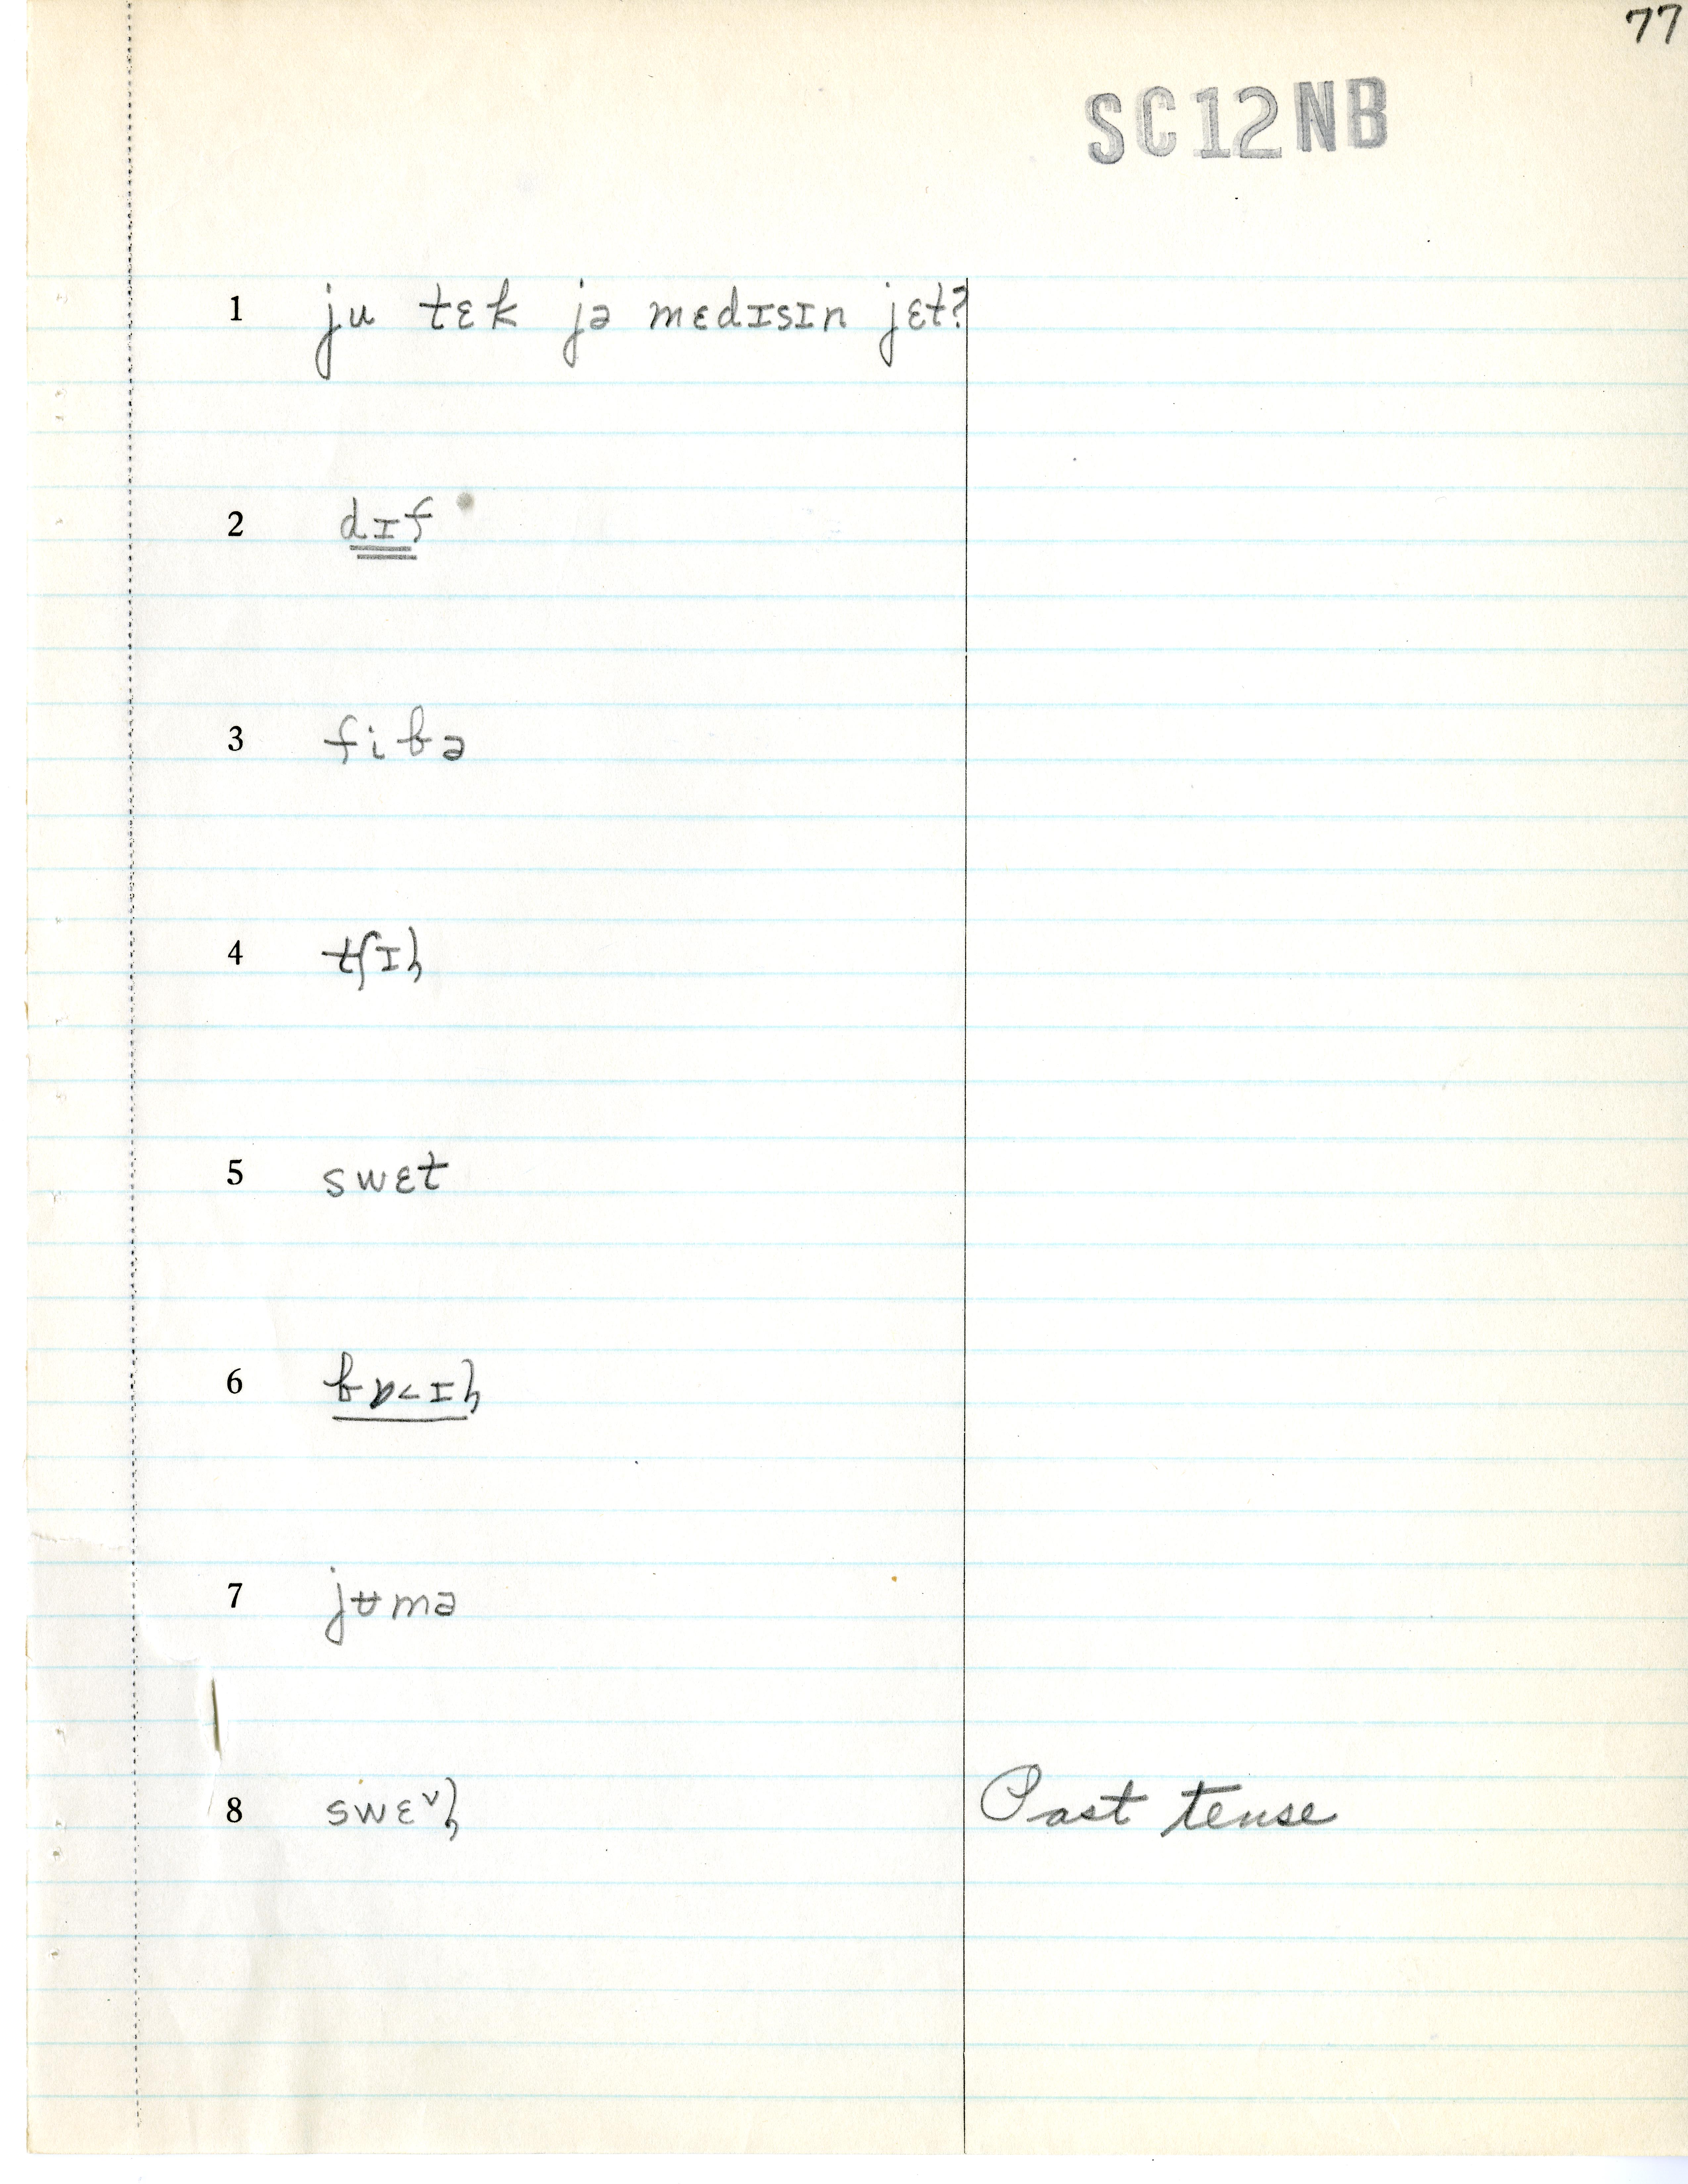 77
SC12NB
1 ju tɛk jə mɛdɪsɪn jɛt?
2 dɪf
3 fiɓə
4 tʃɪl
5 swɛt
6 
7 jʉmə
8 Past tense